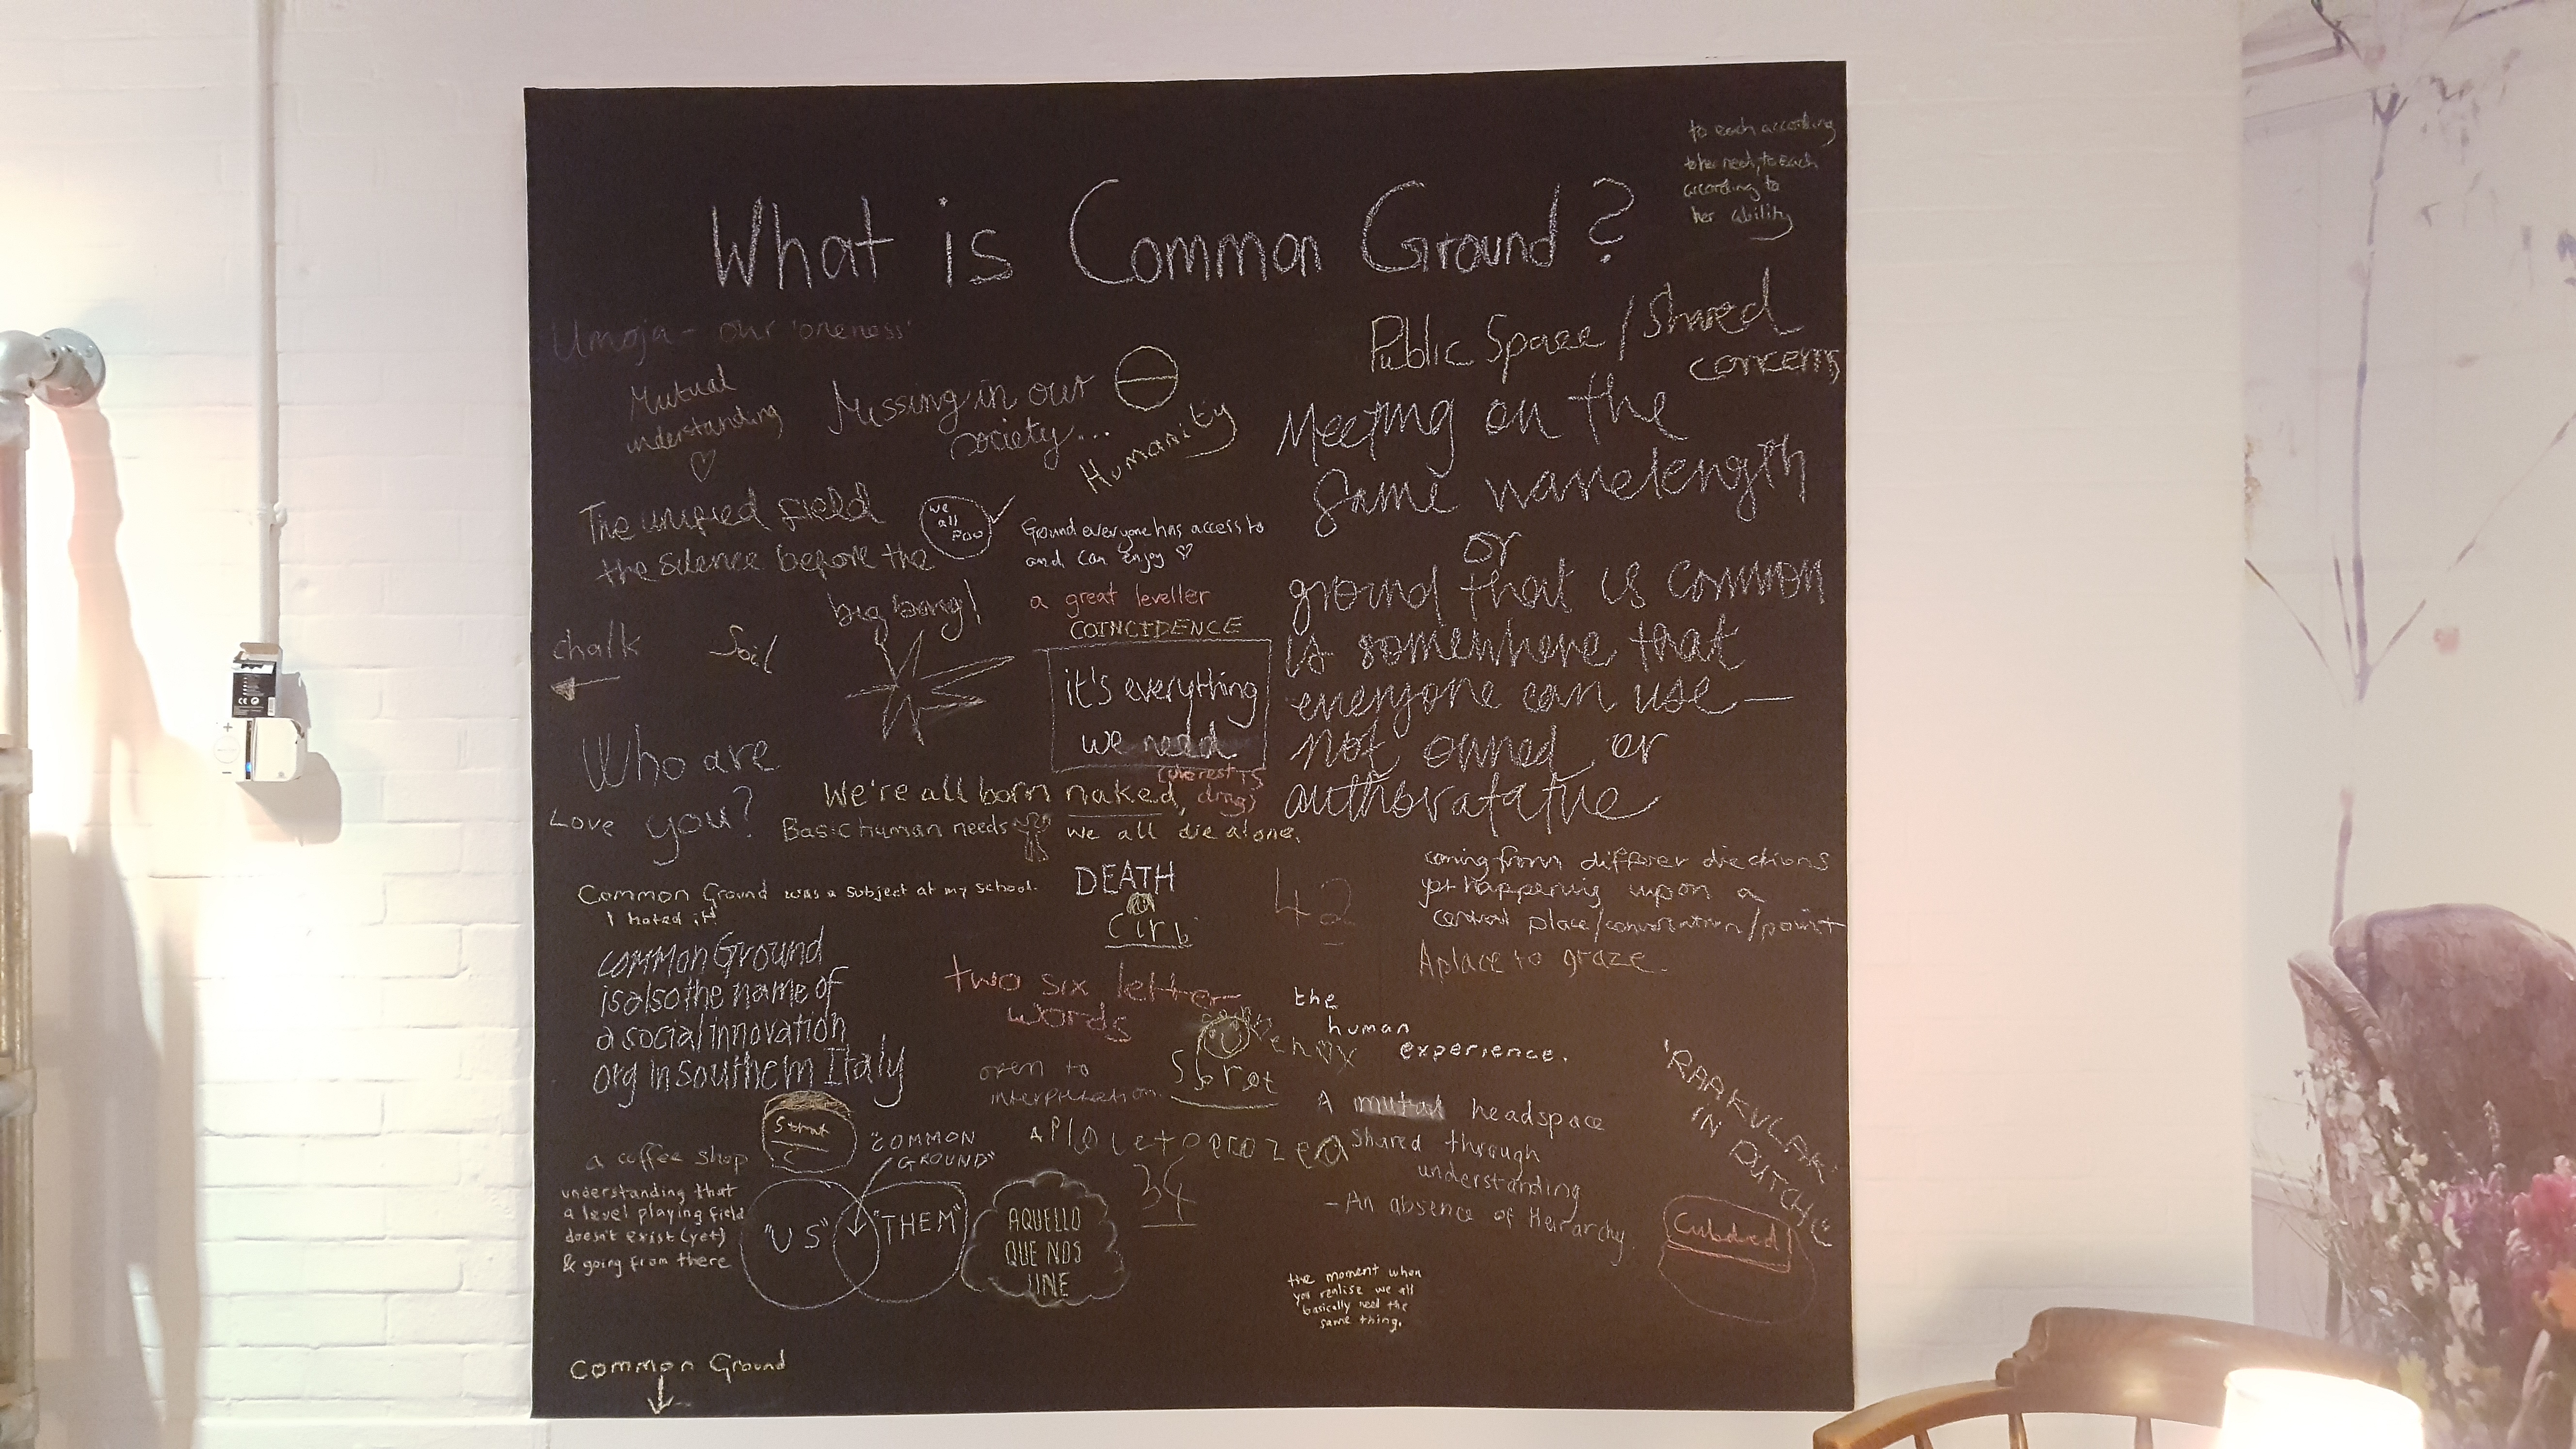 What is Common Ground?
to each according
to her need, to each
according to
her ability
Umoja - our 'oneness'
Public Space / Shared
concerns
Mutual
understanding
Missing in our
society...
Humanity
Meeting on the
same wavelength
or
ground that is common
is somewhere that
everyone can use —
not owned or
authoratative
The unified field
the silence before the
big bang!
we
all
Poo
Ground everyone has access to
and can enjoy
a great leveller
COINCIDENCE
it's everything
we need
chalk
Soil
Who are
you?
Love
We're all born naked,
drugs
Basic human needs
we all die alone.
Common Ground was a subject at my school.
I hated it
DEATH
42
coming from differer directions
yet happening upon a
central place/conversation/point
A place to graze.
common Ground
is also the name of
a social innovation
org in Southern Italy
two six letter
words
the
human
experience.
open to
interpretation.
'RAAKVLAK'
IN DUTCH
A mutal headspace
shared through
understanding
- An absence of Heirarchy.
a coffee shop
"COMMON
GROUND"
34
understanding that
a level playing field
doesn't exist (yet)
& going from there
"US"
"THEM"
AQUELLO
QUE NOS
UNE
the moment when
you realise we all
basically need the
same thing.
Common Ground